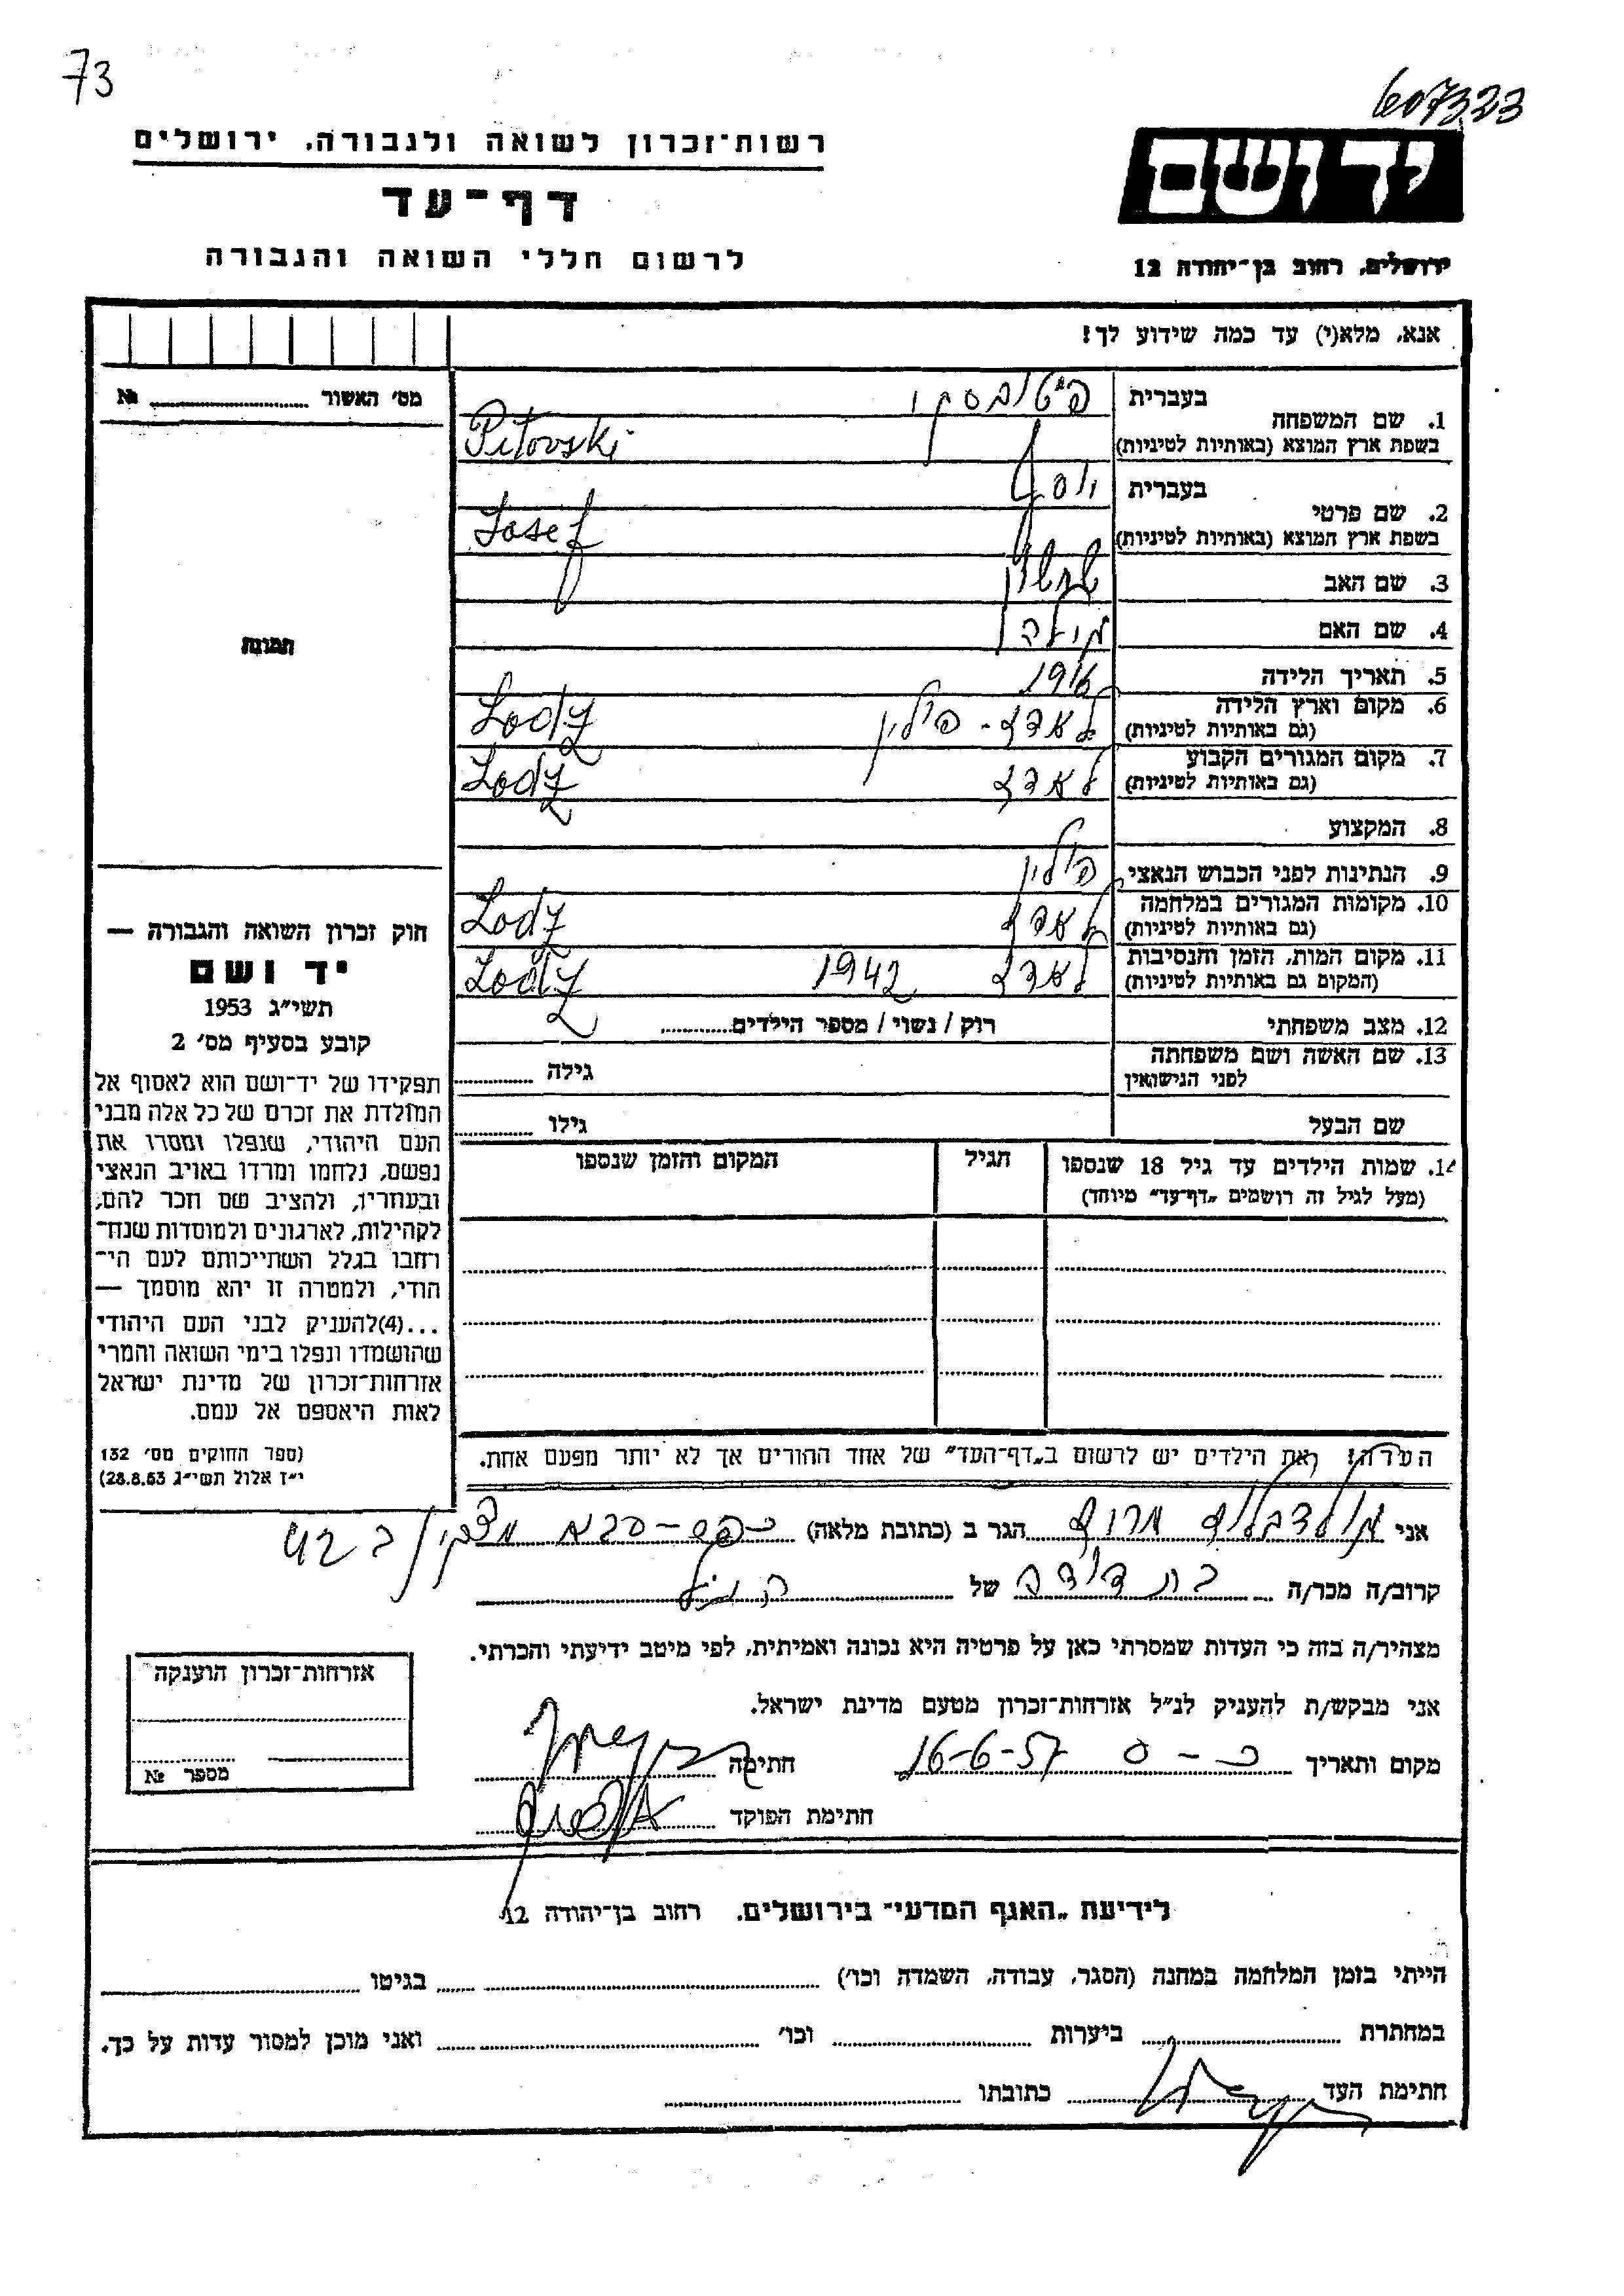 73
607323
רשות־זכרון לשואה ולגבורה, ירושלים
דף־עד
לרשום חללי השואה והגבורה
יד ושם
ירושלים, רחוב בן־יהודה 12
אנא, מלא(י) עד כמה שידוע לך!
מס׳ האשור № 
תמונה
1. שם המשפחה
בעברית פיטובסקי
בשפת ארץ המוצא (באותיות לטיניות) Pitovski
2. שם פרטי
בעברית יוסף
בשפת ארץ המוצא (באותיות לטיניות) Josef
3. שם האב
4. שם האם
5. תאריך הלידה 1916
6. מקום וארץ הלידה לאדז - פולין Lodz
(גם באותיות לטיניות)
7. מקום המגורים הקבוע לאדז Lodz
(גם באותיות לטיניות)
8. המקצוע
9. הנתינות לפני הכבוש הנאצי פולין
10. מקומות המגורים במלחמה לאדז Lodz
(גם באותיות לטיניות)
11. מקום המות, הזמן והנסיבות לאדז 1942 Lodz
(המקום גם באותיות לטיניות)
12. מצב משפחתי רוק / נשוי / מספר הילדים
13. שם האשה ושם משפחתה גילה
לפני הנישואין
שם הבעל גילו
14. שמות הילדים עד גיל 18 שנספו הגיל המקום והזמן שנספו
(מעל לגיל זה רושמים „דף־עד״ מיוחד)
חוק זכרון השואה והגבורה —
יד ושם
תשי״ג 1953
קובע בסעיף מס׳ 2
תפקידו של יד־ושם הוא לאסוף אל
המולדת את זכרם של כל אלה מבני
העם היהודי, שנפלו ומסרו את
נפשם, נלחמו ומרדו באויב הנאצי
ובעוזריו, ולהציב שם וזכר להם,
לקהילות, לארגונים ולמוסדות שנח־
רבו בגלל השתייכותם לעם הי־
הודי, ולמטרה זו יהא מוסמך —
...(4) להעניק לבני העם היהודי
שהושמדו ונפלו בימי השואה והמרי
אזרחות־זכרון של מדינת ישראל
לאות היאספם אל עמם.
(ספר החוקים מס׳ 132
י״ז אלול תשי״ג 28.8.53)
הערה! את הילדים יש לרשום ב„דף־העד״ של אחד ההורים אך לא יותר מפעם אחת.
אני הגר ב (כתובת מלאה) כפר-סבא 42
קרוב/ה מכר/ה בת דודה של הנ״ל
מצהיר/ה בזה כי העדות שמסרתי כאן על פרטיה היא נכונה ואמיתית, לפי מיטב ידיעתי והכרתי.
אני מבקש/ת להעניק לנ״ל אזרחות־זכרון מטעם מדינת ישראל.
מקום ותאריך כ-ס 16-6-57 חתימה
חתימת הפוקד
אזרחות־זכרון הוענקה
מספר №
לידיעת „האגף המדעי״ בירושלים, רחוב בן־יהודה 12
הייתי בזמן המלחמה במחנה (הסגר, עבודה, השמדה וכו׳) בגיטו
במחתרת ביערות וכו׳ ואני מוכן למסור עדות על כך.
חתימת העד כתובתו